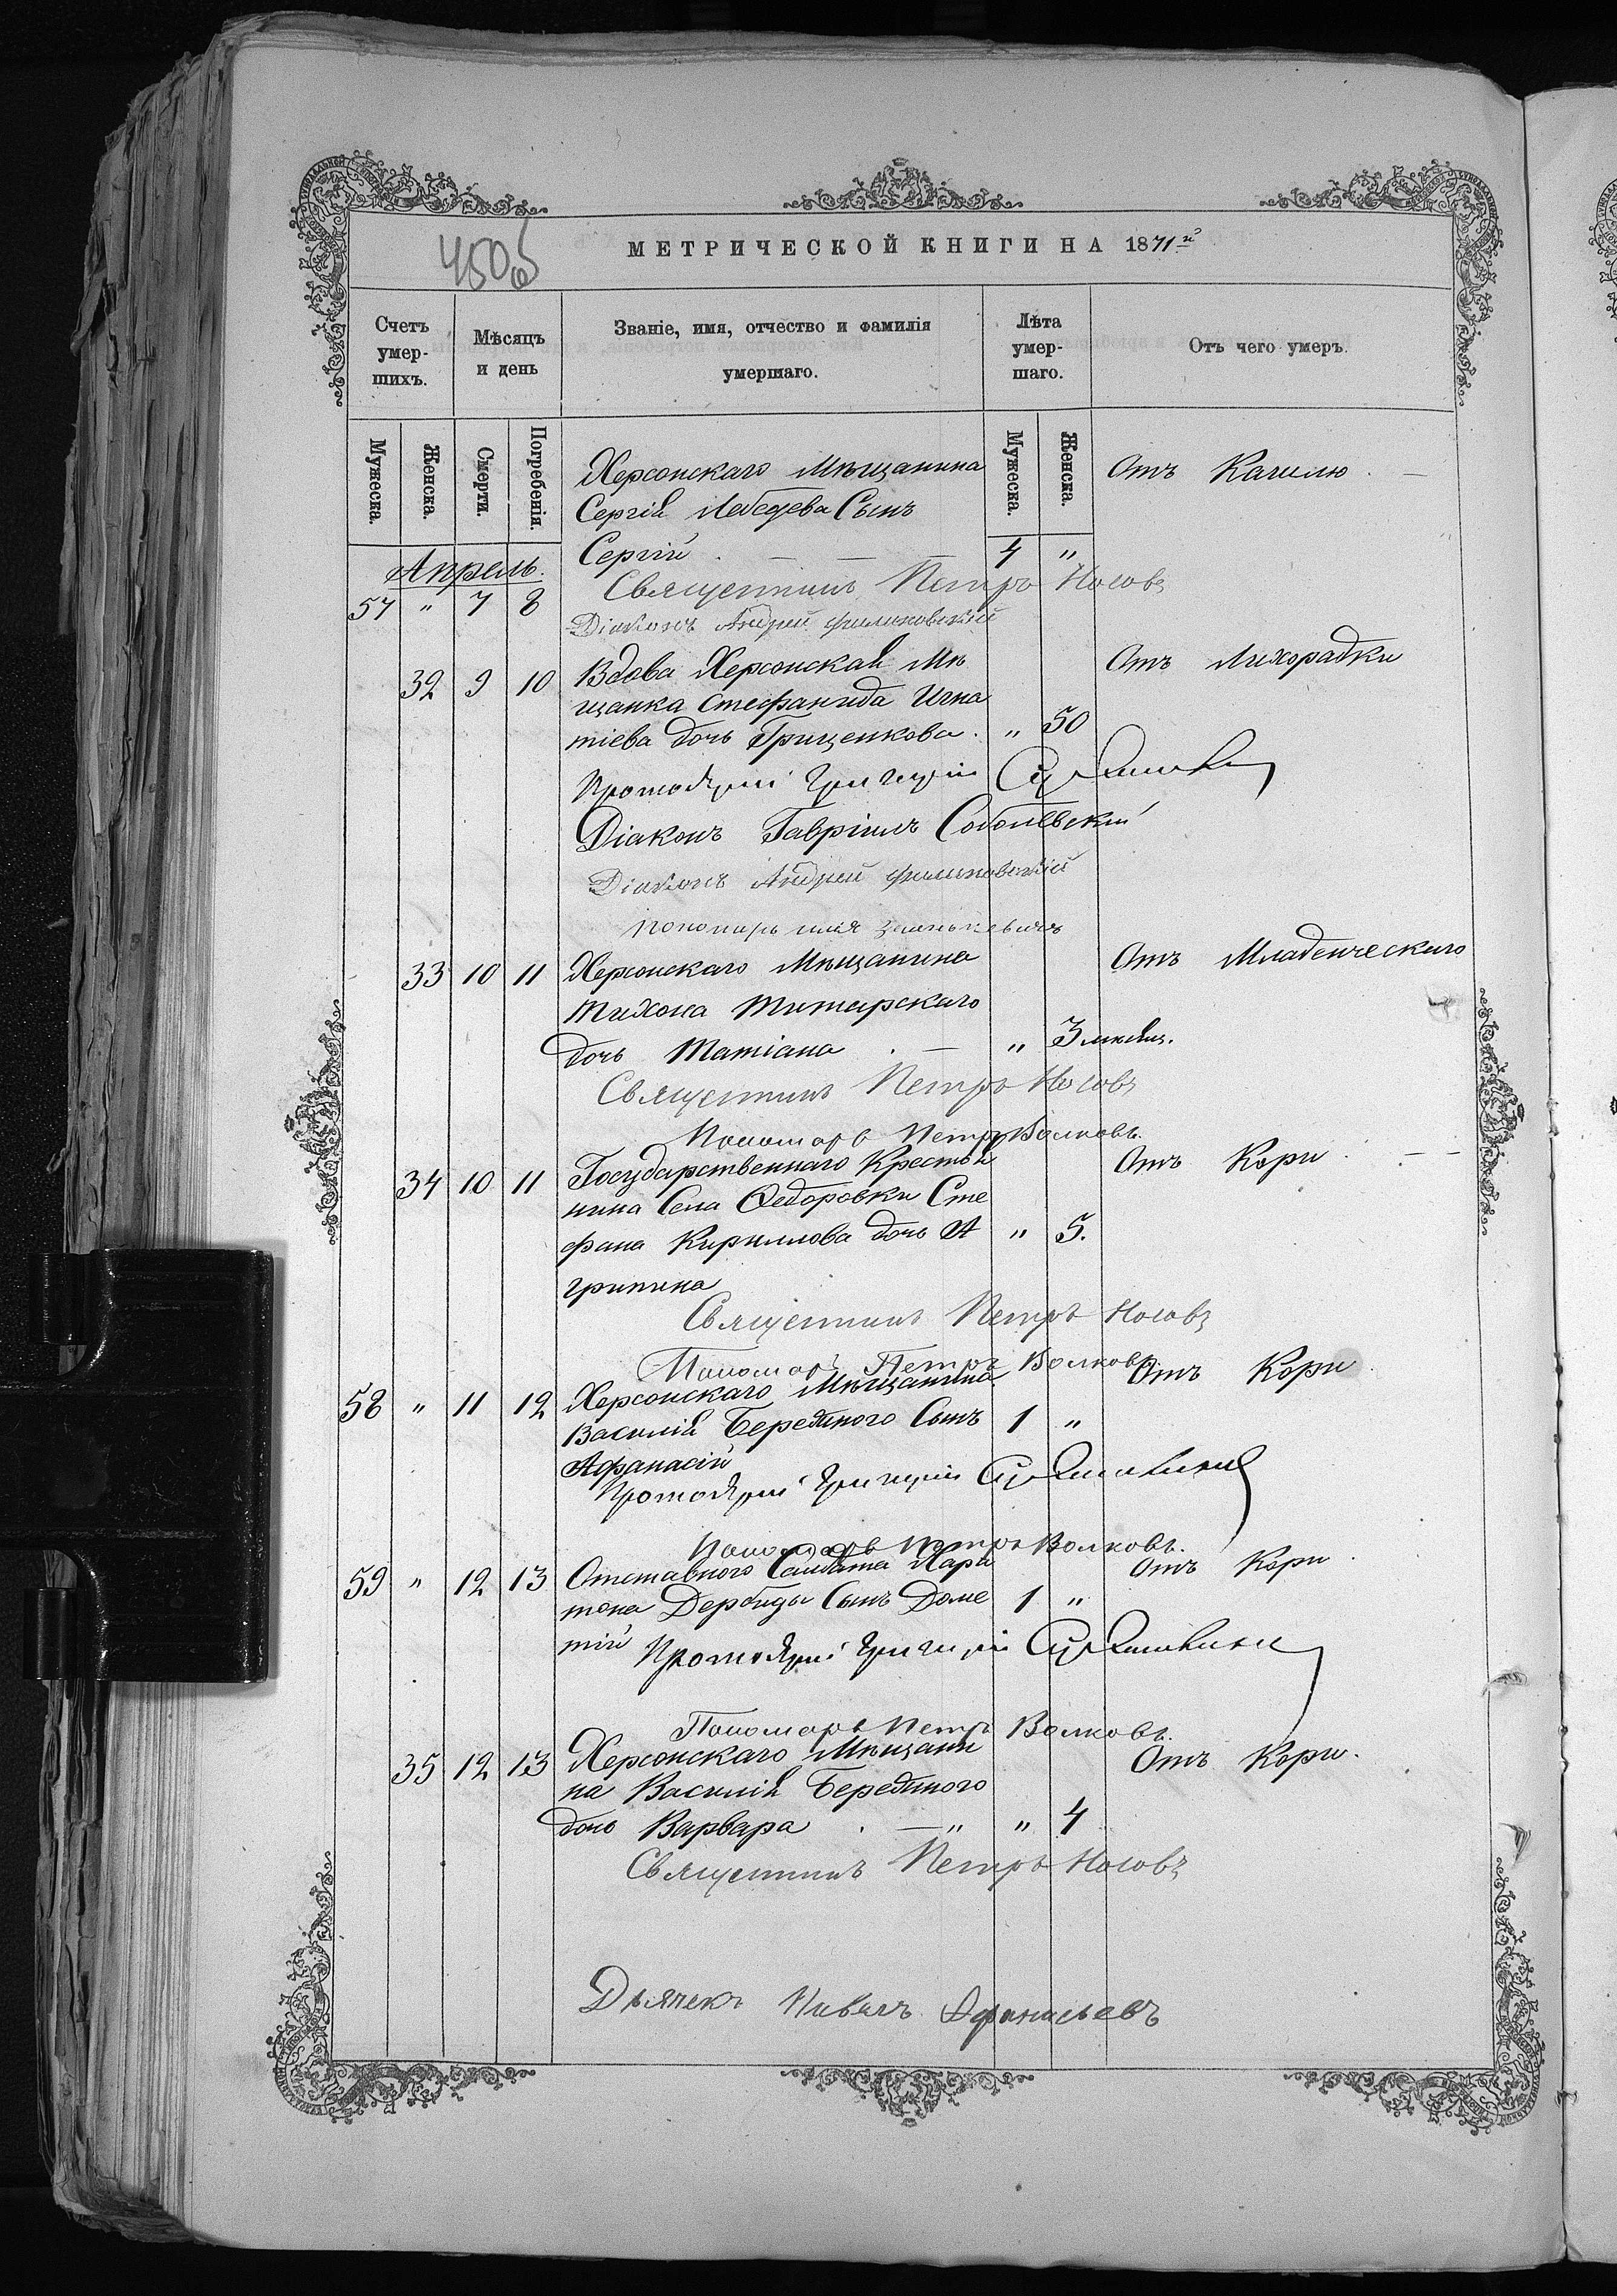 450об
МЕТРИЧЕСКОЙ КНИГИ НА 1871й
Счетъ умер-шихъ.
Мѣсяцъ и день
Званіе, имя, отчество и фамилія умершаго.
Лѣта умер-шаго.
Отъ чего умеръ.
Мужеска. Женска. Смерти. Погребенія. Мужеска. Женска.
Апрель.
Херсонскаго Мѣщанина Отъ Кашлю. —
Сергія Лебедева Сынъ
57 " 7 8 Сергій . — — — 4 "
Священникъ Петръ Носовъ
Діаконъ Андрей Филиповскій
32 9 10 Вдова Херсонская Мѣ Отъ Лихорадки
щанка Стефанида Игна
тіева дочь Грищенкова . " 50
Протоіерей Григорій
Діаконъ Гавріилъ Соболевскій
Діаконъ Андрей Филиповскій
пономарь
33 10 11 Херсонскаго Мѣщанина Отъ Младенческаго
Тихона Титарскаго
дочь Татіана . — " 3 мѣсяц.
Священникъ Петръ Носовъ
Пономарь Петръ Волковъ.
34 10 11 Государственнаго Крестья Отъ Кори . — —
нина Села Ѳедоровки Сте
фана Кириллова дочь А " 5.
грипина
Священникъ Петръ Носовъ
Пономарь Петръ Волковъ
58 " 11 12 Херсонскаго Мѣщанина Отъ Кори
Василія Бережного Сынъ 1 "
Афанасій
Протоіерей Григорій
Пономарь Петръ Волковъ.
59 " 12 13 Отставного Солдата Хари Отъ Кори
тона Дербиды Сынъ Доме 1 "
тій
Протоіерей Григорій
Пономарь Петръ Волковъ.
35 12 13 Херсонскаго Мѣщани Отъ Кори.
на Василія Бережного
дочь Варвара . — " " 4
Священникъ Петръ Носовъ
Дьячекъ Павелъ Афанасьевъ